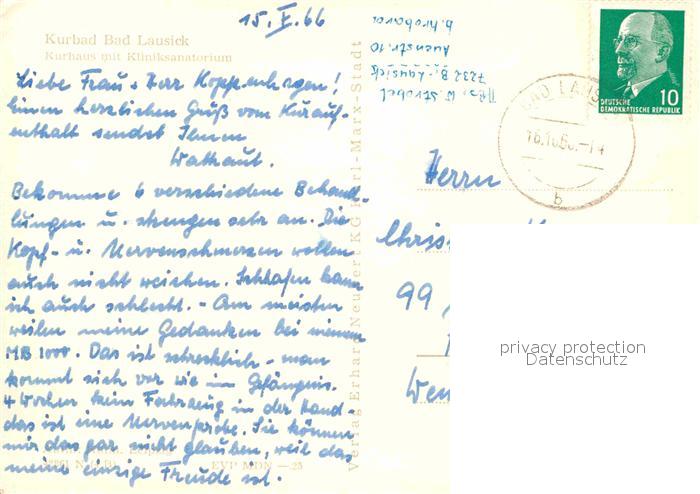 15. X. 66
Kurbad Bad Lausick
Kurhaus mit Kliniksanatorium
Liebe Frau + Herr Koppenhagen!
Einen herzlichen Gruß vom Kurauf-
enthalt sendet Ihnen
Walthaut.
Bekomme 6 verschiedene Behand-
lungen u. strengen sehr an. Die
Kopf- u. Nervenschmerzen wollen
auch nicht weichen. Schlafen kann
ich auch schlecht. - Am meisten
weilen meine Gedanken bei meinem
MB 1000. Das ist schrecklich - man
kommt sich vor wie im Gefängnis.
4 Wochen kein Fahrzeug in der Hand -
das ist eine Nervenprobe. Sie können
mir das gar nicht glauben, weil das
meine einzige Freude ist.
EVP MDN -.25
Verlag Erhard Neubert KG Karl-Marx-Stadt
W. Strobel
7232 B.-Lausick
Auenstr. 10
DEUTSCHE
DEMOKRATISCHE REPUBLIK
10
BAD LAUSICK
b
Herrn
99
privacy protection
Datenschutz